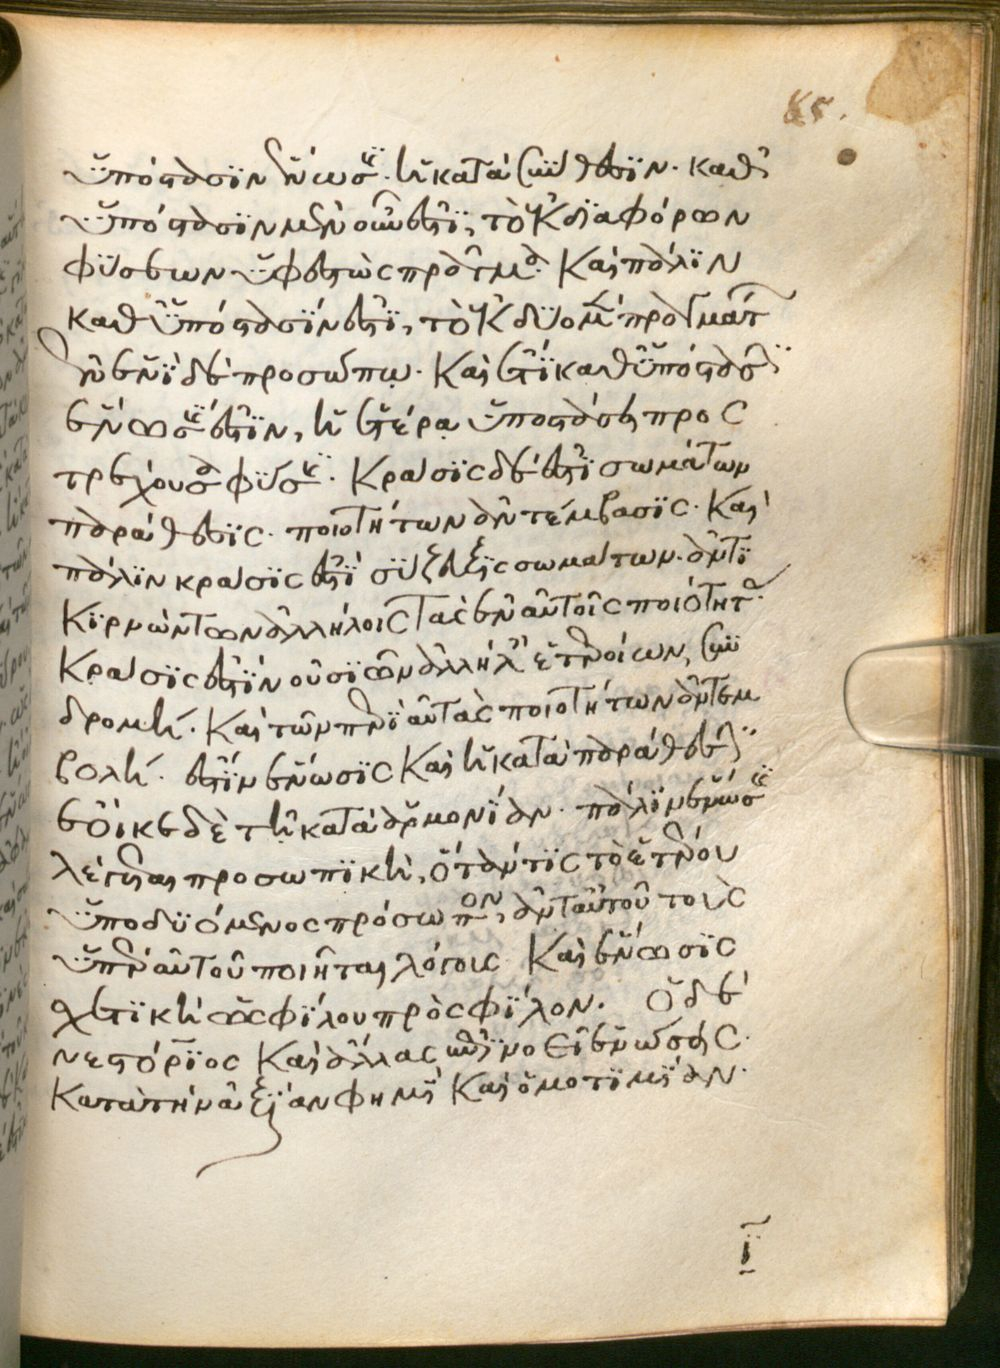 85.
ὑπόστασιν ἕνωσις. ἢ κατὰ σύνθεσιν. καθ'
ὑπόστασιν μὲν οὖν ἐστὶ, τὸ ἐκ διαφόρων
φύσεων ὑφεστὼς πρᾶγμα. Καὶ πάλιν
καθ' ὑπόστασίν ἐστι, τὸ ἐκ δύο μὲν πραγμάτων
ἐν ἑνὶ δὲ προσώπῳ. Καὶ ἔτι καθ' ὑπόστασιν
ἕνωσις ἐστὶν, ἡ ἑτέρᾳ ὑποστάσει προς
τρέχουσα φύσις. Κρᾶσις δέ ἐστι σωμάτων
παράθεσις. ποιοτήτων ἀντέμβασις. Καὶ
πάλιν κρᾶσις ἐστὶ σύζευξις σωμάτων. ἀντι
κιρνώντων ἀλλήλοις τὰς ἐν αὐτοῖς ποιότητας.
Κρᾶσις ἐστὶν οὐσιῶν ἀλλήλαις ἑτεροίων, συν
δρομή. Καὶ τῶν περὶ αὐτὰς ποιοτήτων ἀντεμ
βολή. ἐστὶν ἕνωσις Καὶ ἡ κατὰ παράθεσιν
ἔοικε δὲ τῇ κατὰ ἁρμονίαν. πάλιν ἕνωσις
λέγεται προσωπικὴ, ὅταν τὶς τὸ ἑτέρου
ὑποδυόμενος πρόσωπον, ἀντ' αὐτοῦ τοὺς
ὑπὲρ αὐτοῦ ποιῆται λόγοις Καὶ ἕνωσις
σχετικὴ ὡς φίλου πρὸς φίλον. Ὁ δὲ
νεστόριος Καὶ ἄλλας ἐπινοεῖ ἑνώσεις.
Κατὰ τὴν ἀξίαν φημὶ Καὶ ὁμοτιμίαν.
ϊ